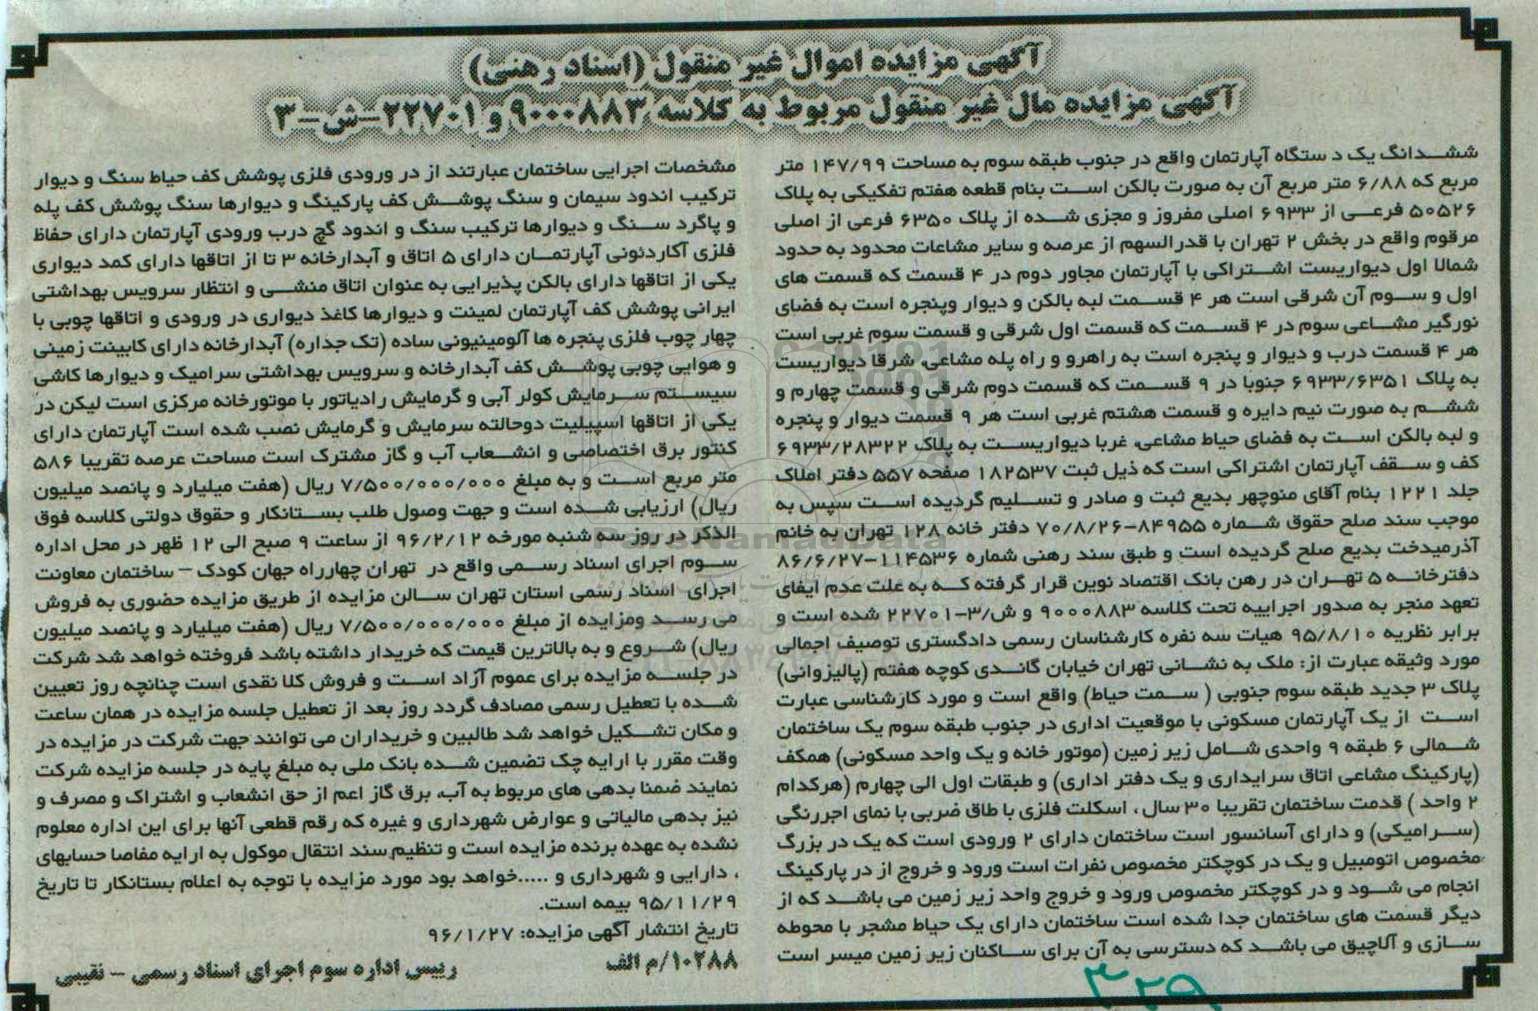 آگهی مزایده اموال غیر منقول (اسناد رهنی)
آگهی مزایده مال غیر منقول مربوط به کلاسه ۹۰۰۰۸۸۳ و ۲۲۷۰۱-ش-۳
ششدانگ یک دستگاه آپارتمان واقع در جنوب طبقه سوم به مساحت ۱۴۷/۹۹ متر
مربع که ۶/۸۸ متر مربع آن به صورت بالکن است بنام قطعه هفتم تفکیکی به پلاک
۵۰۵۲۶ فرعی از ۶۹۳۳ اصلی مفروز و مجزی شده از پلاک ۶۳۵۰ فرعی از اصلی
مرقوم واقع در بخش ۲ تهران با قدرالسهم از عرصه و سایر مشاعات محدود به حدود
شمالا اول دیواریست اشتراکی با آپارتمان مجاور دوم در ۴ قسمت که قسمت های
اول و سوم آن شرقی است هر ۴ قسمت لبه بالکن و دیوار وپنجره است به فضای
نورگیر مشاعی سوم در ۴ قسمت که قسمت اول شرقی و قسمت سوم غربی است
هر ۴ قسمت درب و دیوار و پنجره است به راهرو و راه پله مشاعی، شرقا دیواریست
به پلاک ۶۹۳۳/۶۳۵۱ جنوبا در ۹ قسمت که قسمت دوم شرقی و قسمت چهارم و
ششم به صورت نیم دایره و قسمت هشتم غربی است هر ۹ قسمت دیوار و پنجره
و لبه بالکن است به فضای حیاط مشاعی، غربا دیواریست به پلاک ۶۹۳۳/۲۸۳۲۲
کف و سقف آپارتمان اشتراکی است که ذیل ثبت ۱۸۲۵۳۷ صفحه ۵۵۷ دفتر املاک
جلد ۱۲۲۱ بنام آقای منوچهر بدیع ثبت و صادر و تسلیم گردیده است سپس به
موجب سند صلح حقوق شماره ۸۴۹۵۵-۷۰/۸/۲۶ دفتر خانه ۱۲۸ تهران به خانم
آذرمیدخت بدیع صلح گردیده است و طبق سند رهنی شماره ۱۱۴۵۳۶-۸۶/۶/۲۷
دفترخانه ۵ تهران در رهن بانک اقتصاد نوین قرار گرفته که به علت عدم ایفای
تعهد منجر به صدور اجراییه تحت کلاسه ۹۰۰۰۸۸۳ و ش/۳-۲۲۷۰۱ شده است و
برابر نظریه ۹۵/۸/۱۰ هیات سه نفره کارشناسان رسمی دادگستری توصیف اجمالی
مورد وثیقه عبارت از: ملک به نشانی تهران خیابان گاندی کوچه هفتم (پالیزوانی)
پلاک ۳ جدید طبقه سوم جنوبی ( سمت حیاط) واقع است و مورد کارشناسی عبارت
است از یک آپارتمان مسکونی با موقعیت اداری در جنوب طبقه سوم یک ساختمان
شمالی ۶ طبقه ۹ واحدی شامل زیر زمین (موتور خانه و یک واحد مسکونی) همکف
(پارکینگ مشاعی اتاق سرایداری و یک دفتر اداری) و طبقات اول الی چهارم (هرکدام
۲ واحد ) قدمت ساختمان تقریبا ۳۰ سال ، اسکلت فلزی با طاق ضربی با نمای اجررنگی
(سرامیکی) و دارای آسانسور است ساختمان دارای ۲ ورودی است که یک در بزرگ
مخصوص اتومبیل و یک در کوچکتر مخصوص نفرات است ورود و خروج از در پارکینگ
انجام می شود و در کوچکتر مخصوص ورود و خروج واحد زیر زمین می باشد که از
دیگر قسمت های ساختمان جدا شده است ساختمان دارای یک حیاط مشجر با محوطه
سازی و آلاچیق می باشد که دسترسی به آن برای ساکنان زیر زمین میسر است
مشخصات اجرایی ساختمان عبارتند از در ورودی فلزی پوشش کف حیاط سنگ و دیوار
ترکیب اندود سیمان و سنگ پوشش کف پارکینگ و دیوارها سنگ پوشش کف پله
و پاگرد سنگ و دیوارها ترکیب سنگ و اندود گچ درب ورودی آپارتمان دارای حفاظ
فلزی آکاردئونی آپارتمان دارای ۵ اتاق و آبدارخانه ۳ تا از اتاقها دارای کمد دیواری
یکی از اتاقها دارای بالکن پذیرایی به عنوان اتاق منشی و انتظار سرویس بهداشتی
ایرانی پوشش کف آپارتمان لمینت و دیوارها کاغذ دیواری در ورودی و اتاقها چوبی با
چهار چوب فلزی پنجره ها آلومینیونی ساده (تک جداره) آبدارخانه دارای کابینت زمینی
و هوایی چوبی پوشش کف آبدارخانه و سرویس بهداشتی سرامیک و دیوارها کاشی
سیستم سرمایش کولر آبی و گرمایش رادیاتور با موتورخانه مرکزی است لیکن در
یکی از اتاقها اسپیلیت دوحالته سرمایش و گرمایش نصب شده است آپارتمان دارای
کنتور برق اختصاصی و انشعاب آب و گاز مشترک است مساحت عرصه تقریبا ۵۸۶
متر مربع است و به مبلغ ۷/۵۰۰/۰۰۰/۰۰۰ ریال (هفت میلیارد و پانصد میلیون
ریال) ارزیابی شده است و جهت وصول طلب بستانکار و حقوق دولتی کلاسه فوق
الذکر در روز سه شنبه مورخه ۹۶/۲/۱۲ از ساعت ۹ صبح الی ۱۲ ظهر در محل اداره
سوم اجرای اسناد رسمی واقع در تهران چهارراه جهان کودک – ساختمان معاونت
اجرای اسناد رسمی استان تهران سالن مزایده از طریق مزایده حضوری به فروش
می رسد ومزایده از مبلغ ۷/۵۰۰/۰۰۰/۰۰۰ ریال (هفت میلیارد و پانصد میلیون
ریال) شروع و به بالاترین قیمت که خریدار داشته باشد فروخته خواهد شد شرکت
در جلسه مزایده برای عموم آزاد است و فروش کلا نقدی است چنانچه روز تعیین
شده با تعطیل رسمی مصادف گردد روز بعد از تعطیل جلسه مزایده در همان ساعت
و مکان تشکیل خواهد شد طالبین و خریداران می توانند جهت شرکت در مزایده در
وقت مقرر با ارایه چک تضمین شده بانک ملی به مبلغ پایه در جلسه مزایده شرکت
نمایند ضمنا بدهی های مربوط به آب، برق گاز اعم از حق انشعاب و اشتراک و مصرف و
نیز بدهی مالیاتی و عوارض شهرداری و غیره که رقم قطعی آنها برای این اداره معلوم
نشده به عهده برنده مزایده است و تنظیم سند انتقال موکول به ارایه مفاصا حسابهای
، دارایی و شهرداری و .....خواهد بود مورد مزایده با توجه به اعلام بستانکار تا تاریخ
۹۵/۱۱/۲۹ بیمه است.
تاریخ انتشار آگهی مزایده: ۹۶/۱/۲۷
۱۰۲۸۸/م الف
رییس اداره سوم اجرای اسناد رسمی – نقیبی
۳۲۹
ParsNamadData